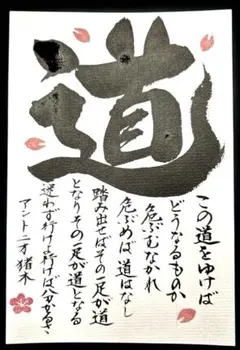 道
この道をゆけば
どうなるものか
危ぶむなかれ
危ぶめば道はなし
踏み出せばその一足が道
となりその一足が道となる
迷わず行け行けば分かるさ
アントニオ猪木